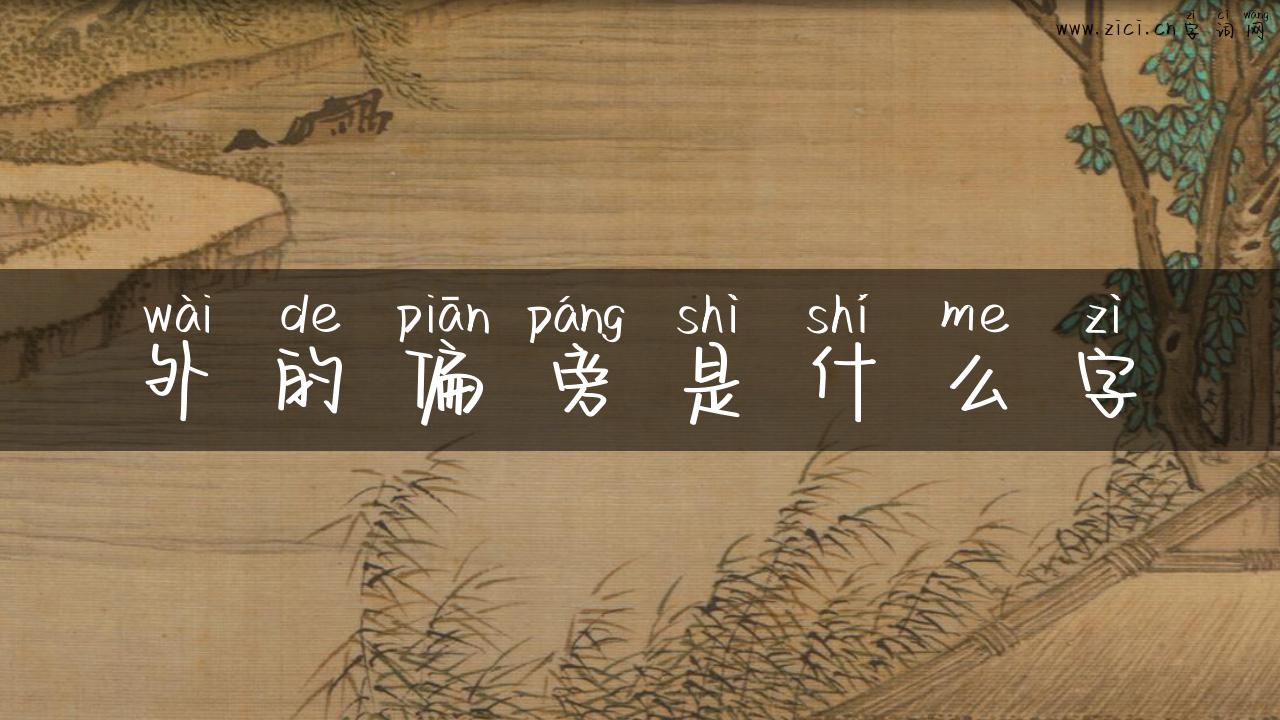 zì cí wǎng
www.zici.cn字词网
wài de piān páng shì shí me zì
外的偏旁是什么字